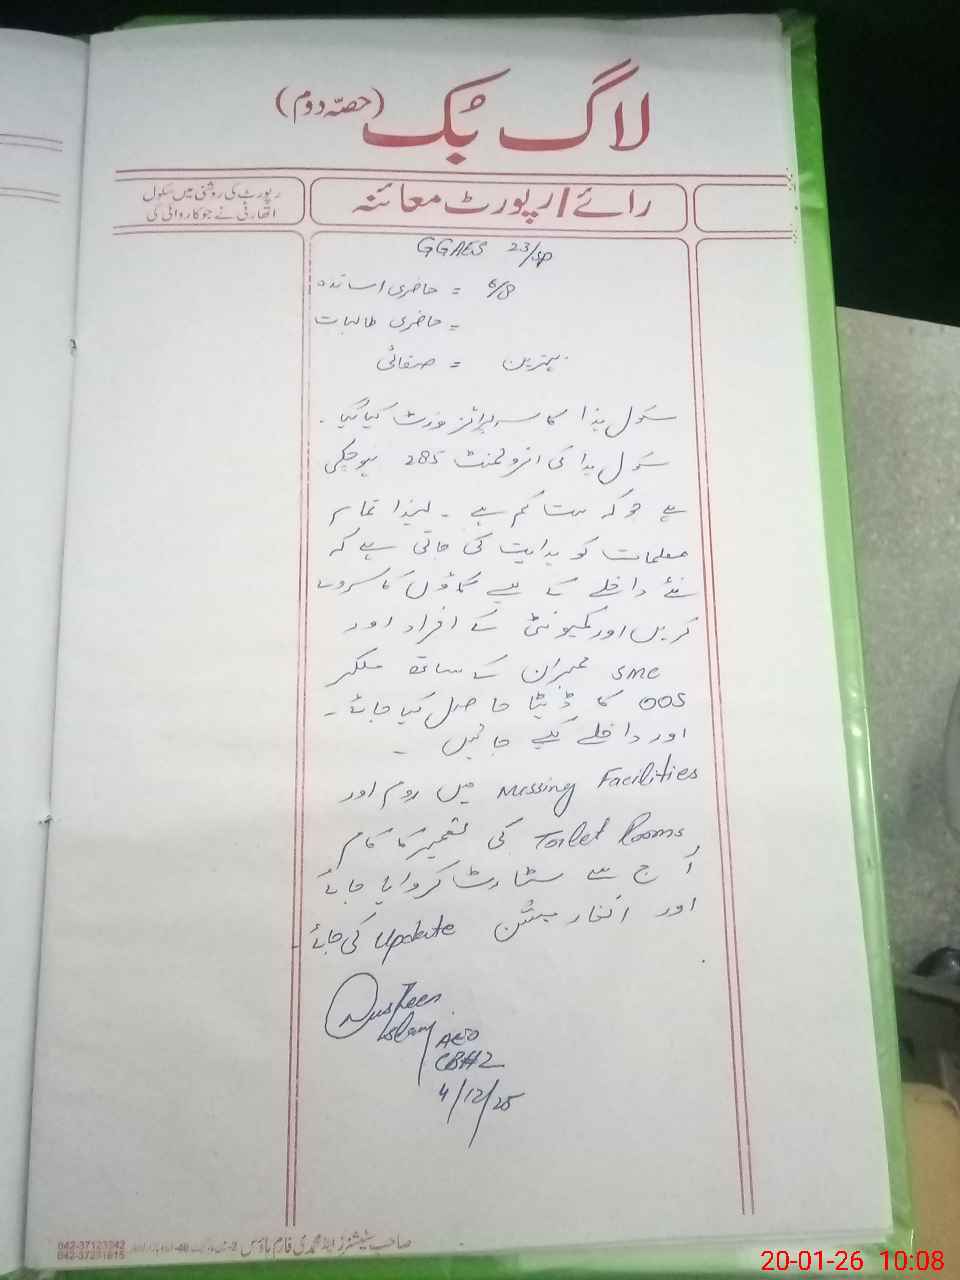 لاگ بُک (حصّہ دوم)
رائے/رپورٹ معائنہ
رپورٹ کی روشنی میں سکول
اتھارٹی نے جو کاروائی کی
GGAES 23/SP
حاضری اساتذہ = 6/8
حاضری طالبات =
صفائی = بہترین
سکول ہذا کا سرپرائز وزٹ کیا گیا۔
سکول ہذا کی انرولمنٹ 285 ہو چکی
ہے جو کہ بہت کم ہے ۔ لہذا تمام
معلمات کو ہدایت کی جاتی ہے کہ
نئے داخلے کے لیے گاؤں کا سروے
کریں اور کمیونٹی کے افراد اور
SMC ممبران کے ساتھ ملکر
OOS کا ڈیٹا حاصل کیا جائے ۔
اور داخلے کیے جائیں ۔
Missing Facilities میں روم اور
Toilet Rooms کی تعمیر کا کام
آج سے سٹارٹ کروایا جائے
اور انفارمیشن update کی جائے ۔
Islam
AEO
4/12/25
صاحب سٹیشنرز اینڈ محمدی فارم ہاؤس
042-37123942
042-37231615
20-01-26 10:08